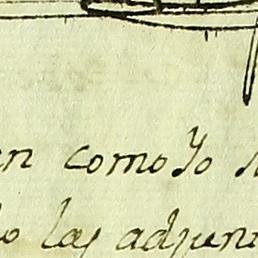 en como Yo
las adjun